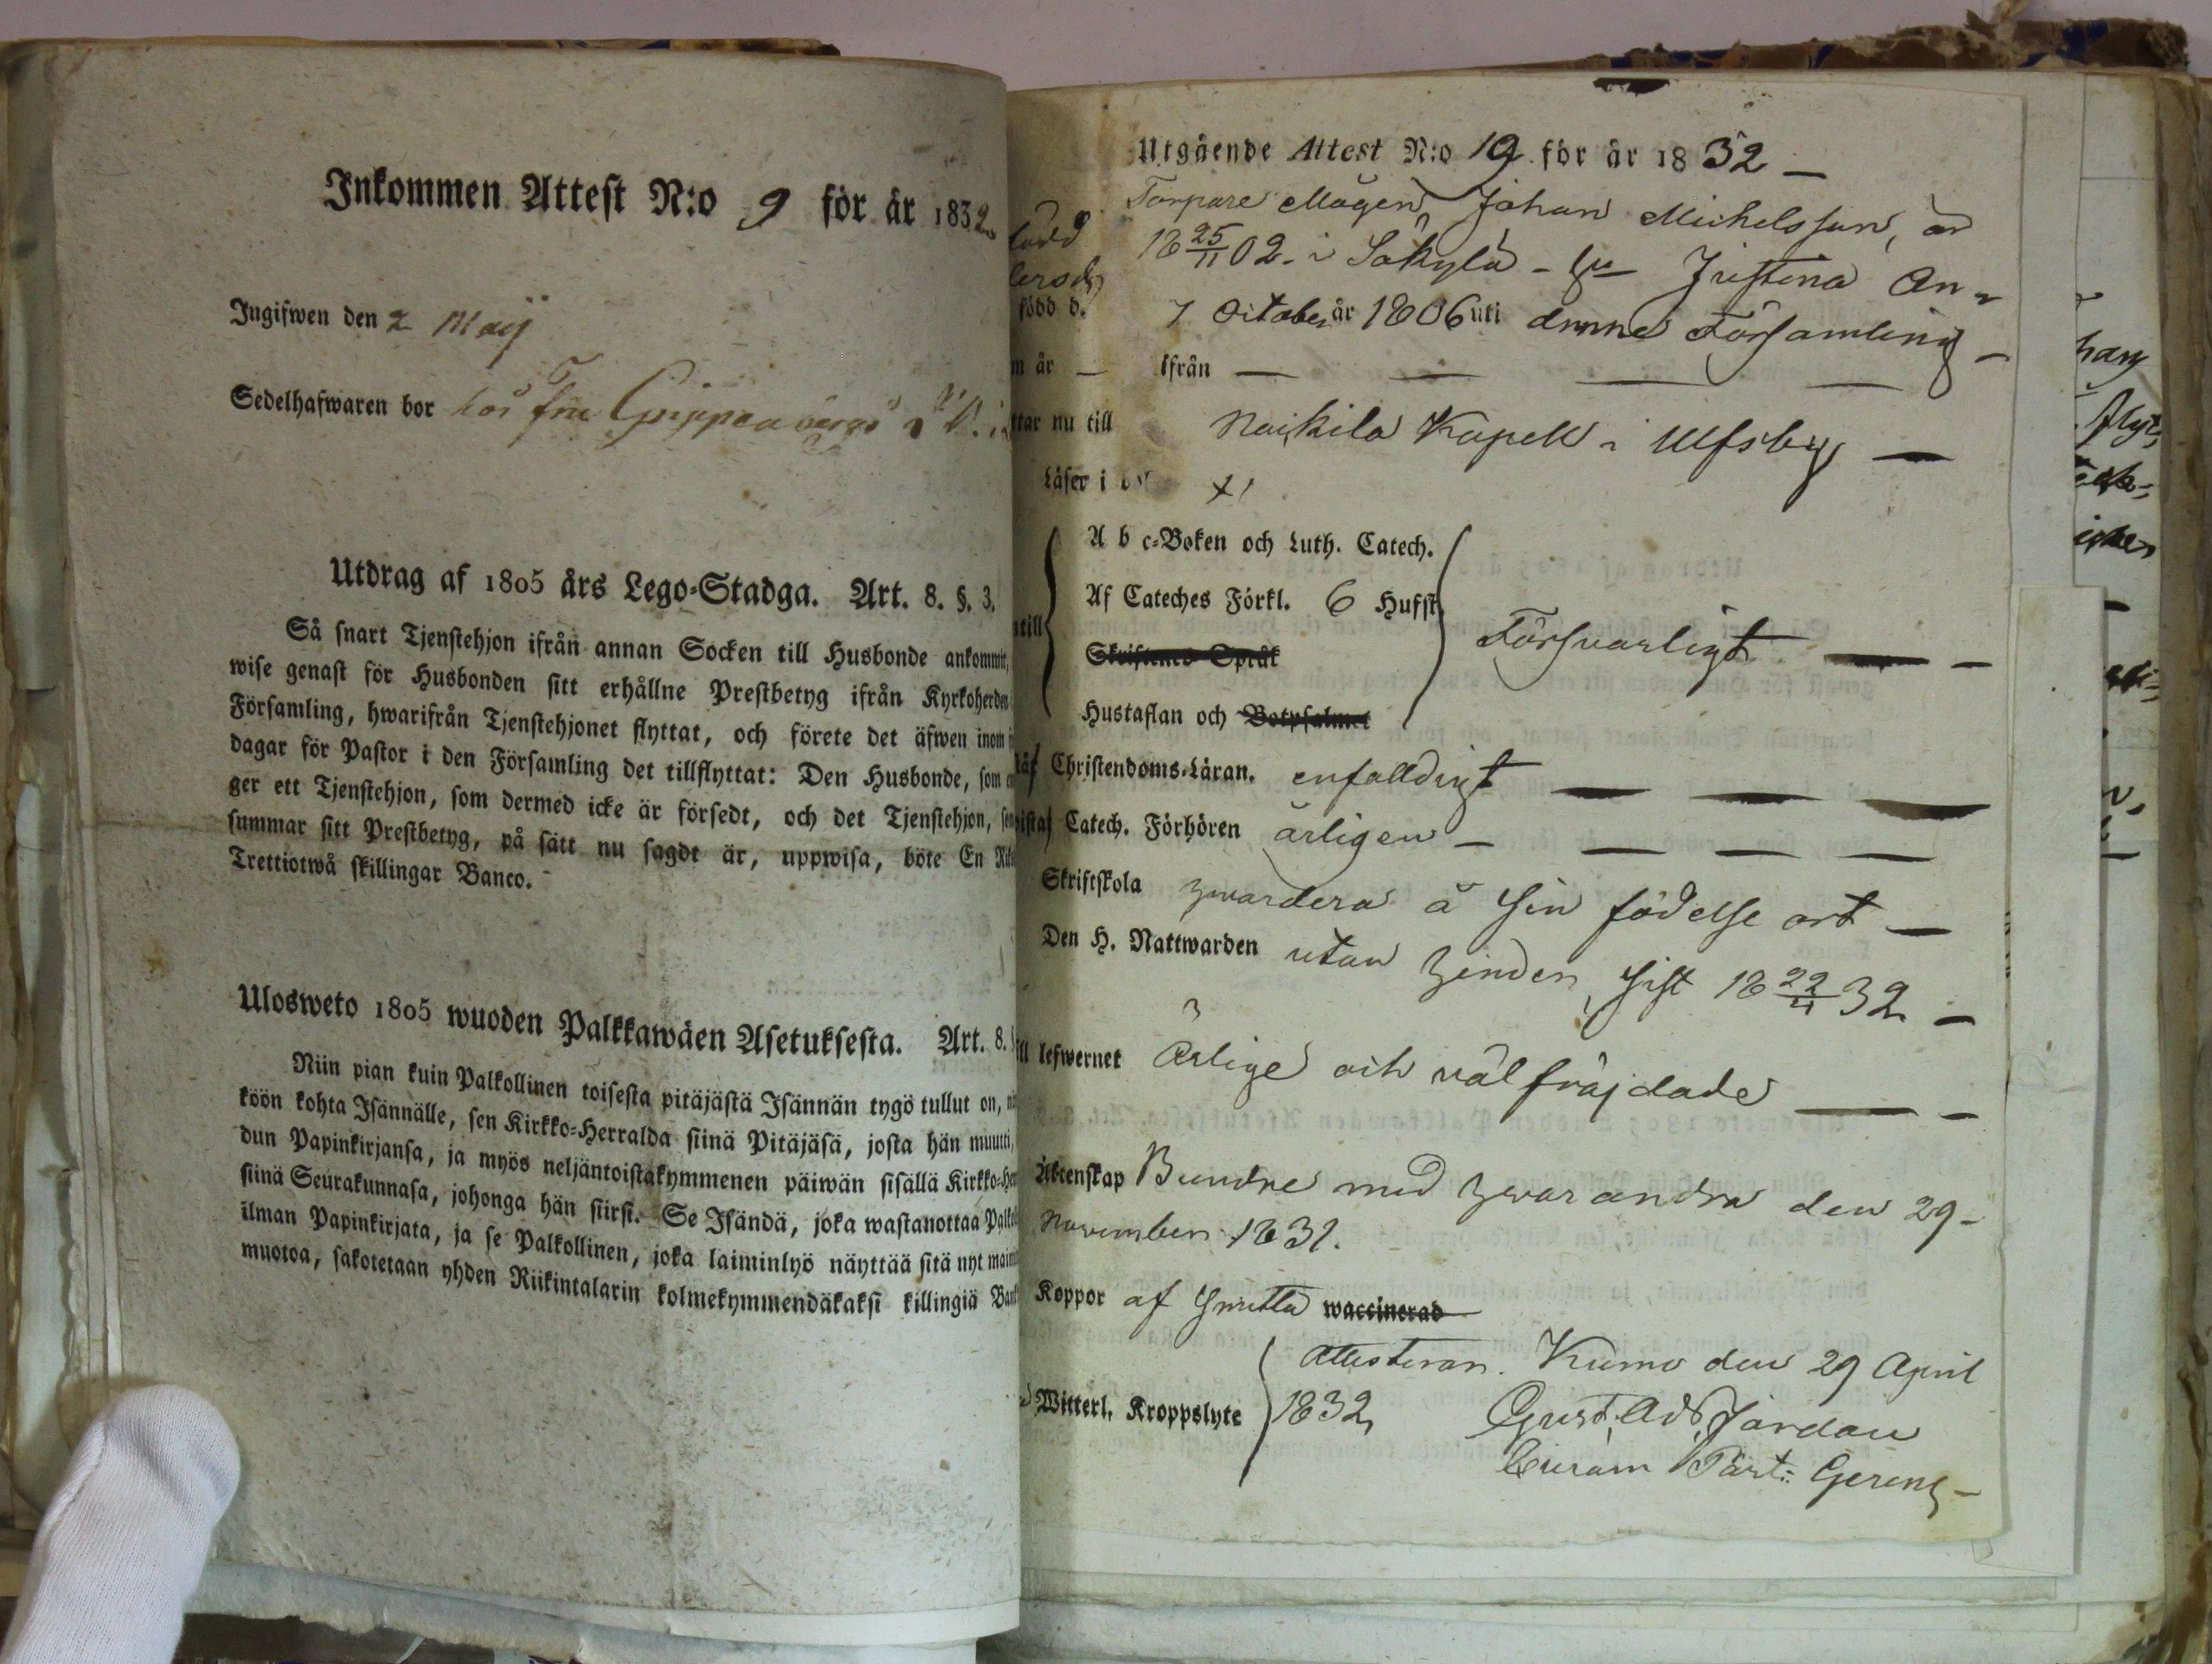 Inkommen Attest N:o 9 för år 1832
Ingifwen den 2 Maij
Sedelhafwaren bor hos fru
Utdrag af 1805 års Lego-Stadga. Art. 8. §. 3.
Så snart Tjenstehjon ifrån annan Socken till Husbonde ankommit,
wise genast för Husbonden sitt erhållne Prestbetyg ifrån Kyrkoherden
Församling, hwarifrån Tjenstehjonet flyttat, och förete det äfwen inom
dagar för Pastor i den Församling det tillflyttat: Den Husbonde, som
ger ett Tjenstehjon, som dermed icke är försedt, och det Tjenstehjon,
summar sitt Prestbetyg, på sätt nu sagdt är, uppwisa, böte En
Trettiotwå skillingar Banco.
Ulosweto 1805 wuoden Palkkawäen Asetuksesta. Art. 8.
Niin pian kuin Palkollinen toisesta pitäjästä Isännän tygö tullut on,
köön kohta Isännälle, sen Kirkko-Herralda siinä Pitäjäsä, josta hän muutti,
dun Papinkirjansa, ja myös neljäntoistakymmenen päiwän sisällä Kirkko-
siinä Seurakunnasa, johonga hän siirsi. Se Isändä, joka wastanottaa
ilman Papinkirjata, ja se Palkollinen, joka laiminlyö näyttää sitä nyt
muotoa, sakotetaan yhden Riikintalarin kolmekymmendäkaksi killingiä
Utgående Attest N:o 19 för år 1832 —
Torpare Mågen Johan Michelsson,
18 25/11 02. i Säkylä - Justina An-
född d. 7 October år 1806 uti denne Församling —
m år — ifrån — — — —
ttar nu till Naikila Kapell i Ulfsby —
Läser i
A b c-Boken och Luth. Catech.
Af Cateches Förkl. 6 Hufst
till
Försvarligt — —
Skriftenes Språk
Hustaflan och Botpsalmer
Christendoms-Läran. enfalldigt — — —
Catech. Förhören årligen — — — —
Skriftskola hvardera å sin födelse ort —
Den H. Nattwarden utan hinder, sist 18 22/4 32 —
ll lefwernet Ärlige och väl fräjdade — —
Äktenskap Bundne med hvarandra den 29-
November 1831.
Koppor af Smitta waccinerad
Attesteras. Kumo den 29 April
Witterl. Kroppslyte 1832,
Gust. Ad. Jordan
Past: Gereng —